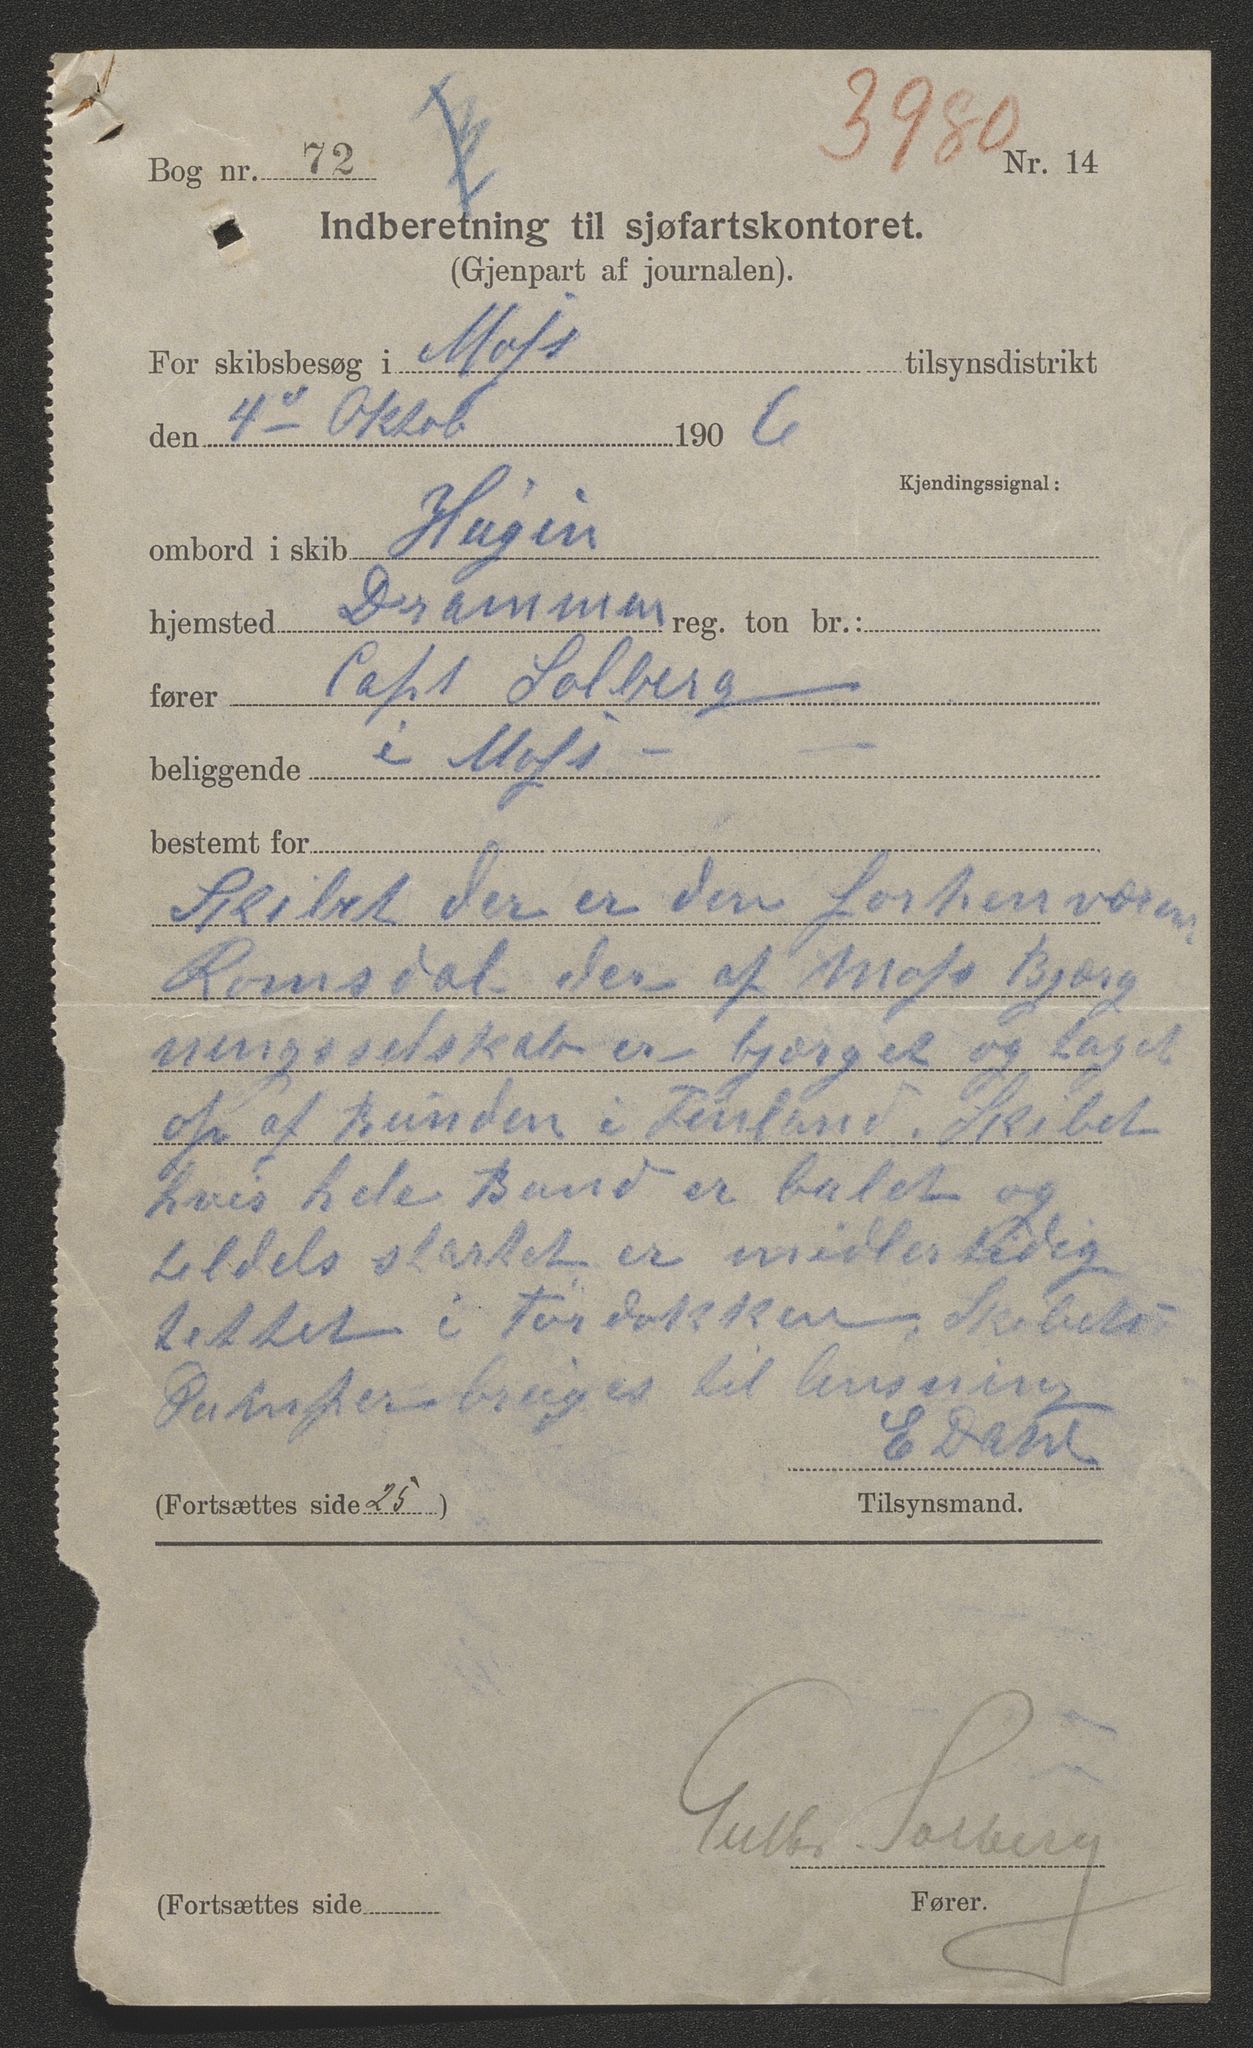 3980
Bog nr. 72
Nr. 14
Indberetning til sjøfartskontoret.
(Gjenpart af journalen).
For skibsbesøg i Moss tilsynsdistrikt
den 4de Oktob 1906
Kjendingssignal:
ombord i skib Hugin
hjemsted Drammen reg. ton br.:
fører Capt Solberg
beliggende i Moss -
bestemt for
Skibet der er den forhenværen
Romsdal der af Moss Bjærg
ningsselskab er bjærget og taget
op af Bunden i Finland. Skibet
hvis hele Bund er bulet og
teldels er midlertidig
tettet i Tørdokken. Skibets
Pumper bruges til lensning
E Dahl
(Fortsættes side 25)
Tilsynsmand.
Gulbr. Solberg
(Fortsættes side
Fører.